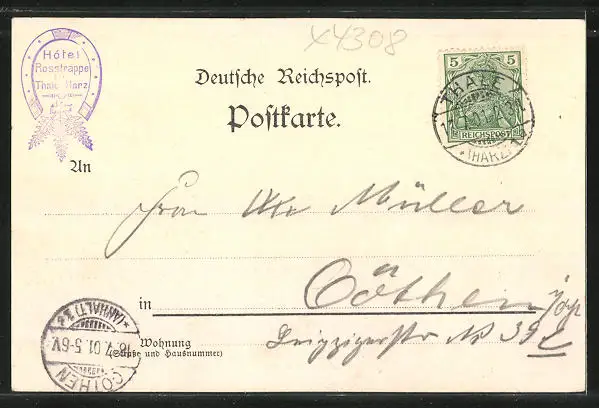 x4308
Hôtel
Rosstrappe
Thale Harz
Deutsche Reichspost.
Postkarte.
5 5
REICHSPOST
THALE
(HARZ)
An
Frau Müller
in Cöthen
Wohnung
(Straße und Hausnummer)
Leipzigerstr No 39
CÖTHEN
(ANHALT)
7.01.5-6V.